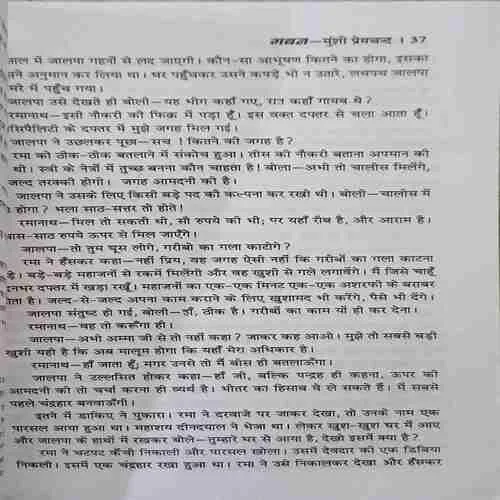 ग़बन—मुंशी प्रेमचन्द । 37
साल में जालपा गहनों से लद जाएगी। कौन-सा आभूषण कितने का होगा, इसका
सने अनुमान कर लिया था। घर पहुँचकर उसने कपड़े भी न उतारे, लथपथ जालपा
मरे में पहुँच गया।
जालपा उसे देखते ही बोली—यह भीग कहाँ गए, रात कहाँ गायब थे?
रमानाथ—इसी नौकरी की फ़िक्र में पड़ा हूँ। इस वक्त दफ्तर से चला आता हूँ।
सिपैलिटी के दफ्तर में मुझे जगह मिल गई।
जालपा ने उछलकर पूछा—सच! कितने की जगह है?
रमा को ठीक-ठीक बतलाने में संकोच हुआ। तीस की नौकरी बताना अपमान की
थी। स्त्री के नेत्रों में तुच्छ बनना कौन चाहता है! बोला—अभी तो चालीस मिलेंगे,
जल्द तरक्की होगी। जगह आमदनी की है।
जालपा ने उसके लिए किसी बड़े पद की कल्पना कर रखी थी। बोली—चालीस में
होगा? भला साठ-सत्तर तो होते!
रमानाथ—मिल तो सकती थी, सौ रुपये की भी; पर यहाँ रौब है, और आराम है।
चास-साठ रुपये ऊपर से मिल जाएँगे।
जालपा—तो तुम घूस लोगे, गरीबों का गला काटोगे?
रमा ने हँसकर कहा—नहीं प्रिय, वह जगह ऐसी नहीं कि गरीबों का गला काटना
ड़े। बड़े-बड़े महाजनों से रकमें मिलेंगी और वह खुशी से गले लगायेंगे। मैं जिसे चाहूँ
दनभर दफ्तर में खड़ा रखूँ। महाजनों का एक-एक मिनट एक-एक अशरफी के बराबर
ता है। जल्द-से-जल्द अपना काम कराने के लिए खुशामद भी करेंगे, पैसे भी देंगे।
जालपा संतुष्ट हो गई, बोली—हाँ, ठीक है। गरीबों का काम यों ही कर देना।
रमानाथ—वह तो करूँगा ही।
जालपा—अभी अम्मा जी से तो नहीं कहा? जाकर कह आओ। मुझे तो सबसे बड़ी
खुशी यही है कि अब मालूम होगा कि यहाँ मेरा अधिकार है।
रमानाथ—हाँ जाता हूँ; मगर उनसे तो मैं बीस ही बतलाऊँगा।
जालपा ने उल्लसित होकर कहा—हाँ जी, बल्कि पन्द्रह ही कहना, ऊपर की
आमदनी की तो चर्चा करना ही व्यर्थ है। भीतर का हिसाब वे ले सकते हैं। मैं सबसे
पहले चंद्रहार बनवाऊँगी।
इतने में डाकिए ने पुकारा। रमा ने दरवाजे पर जाकर देखा, तो उनके नाम एक
पारसल आया हुआ था। महाशय दीनदयाल ने भेजा था। लेकर खुश-खुश घर में आए
और जालपा के हाथों में रखकर बोले—तुम्हारे घर से आया है, देखो इसमें क्या है?
रमा ने चटपट कैंची निकाली और पारसल खोला। उसमें देवदार की एक डिबिया
निकली। इसमें एक चंद्रहार रखा हुआ था। रमा ने उसे निकालकर देखा और हँसकर